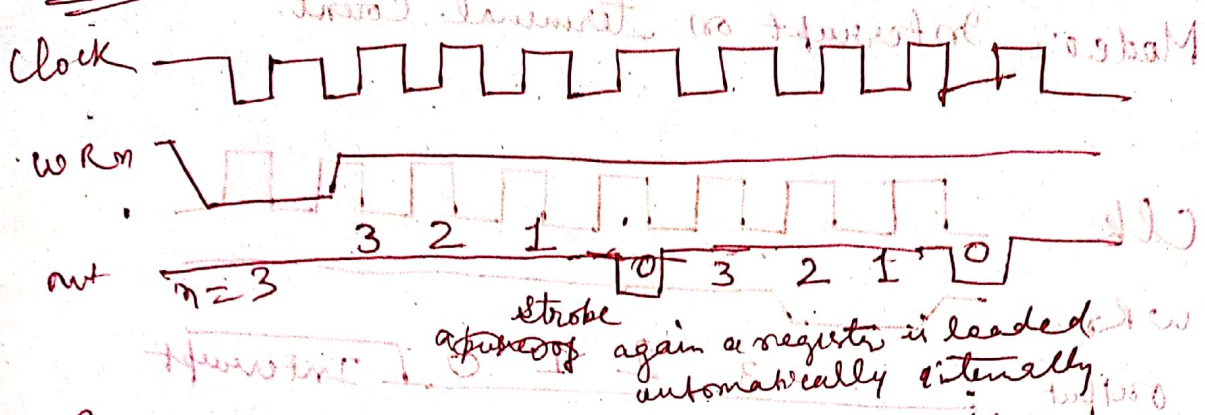 Clock
WRn
3 2 1
out n=3 0 3 2 1 0
strobe
again a register is loaded
automatically internally.